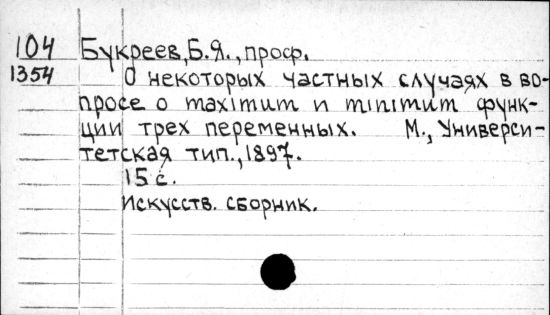 104 Букреев, Б.Я., проф.
1354 О некоторых частных случаях в во-
просе о maximum и minimum функ-
ции трех переменных. М., Универси-
тетская тип., 1897.
15 с.
Искусств. сборник.